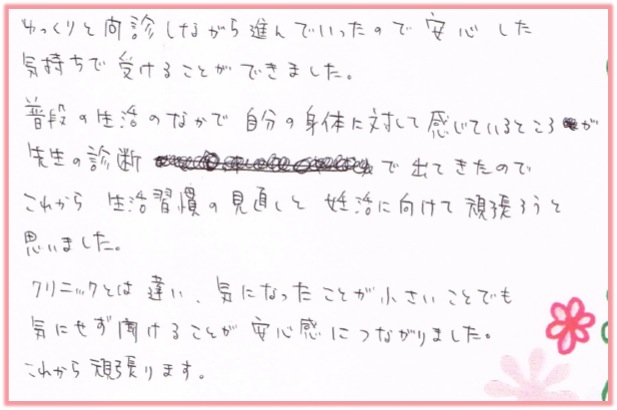 ゆっくりと問診しながら進んでいったので安心した
気持ちで受けることができました。
普段の生活のなかで自分の身体に対して感じているところが
先生の診断で出てきたので
これから生活習慣の見直しと妊活に向けて頑張ろうと
思いました。
クリニックとは違い、気になったことが小さいことでも
気にせず聞けることが安心感につながりました。
これから頑張ります。